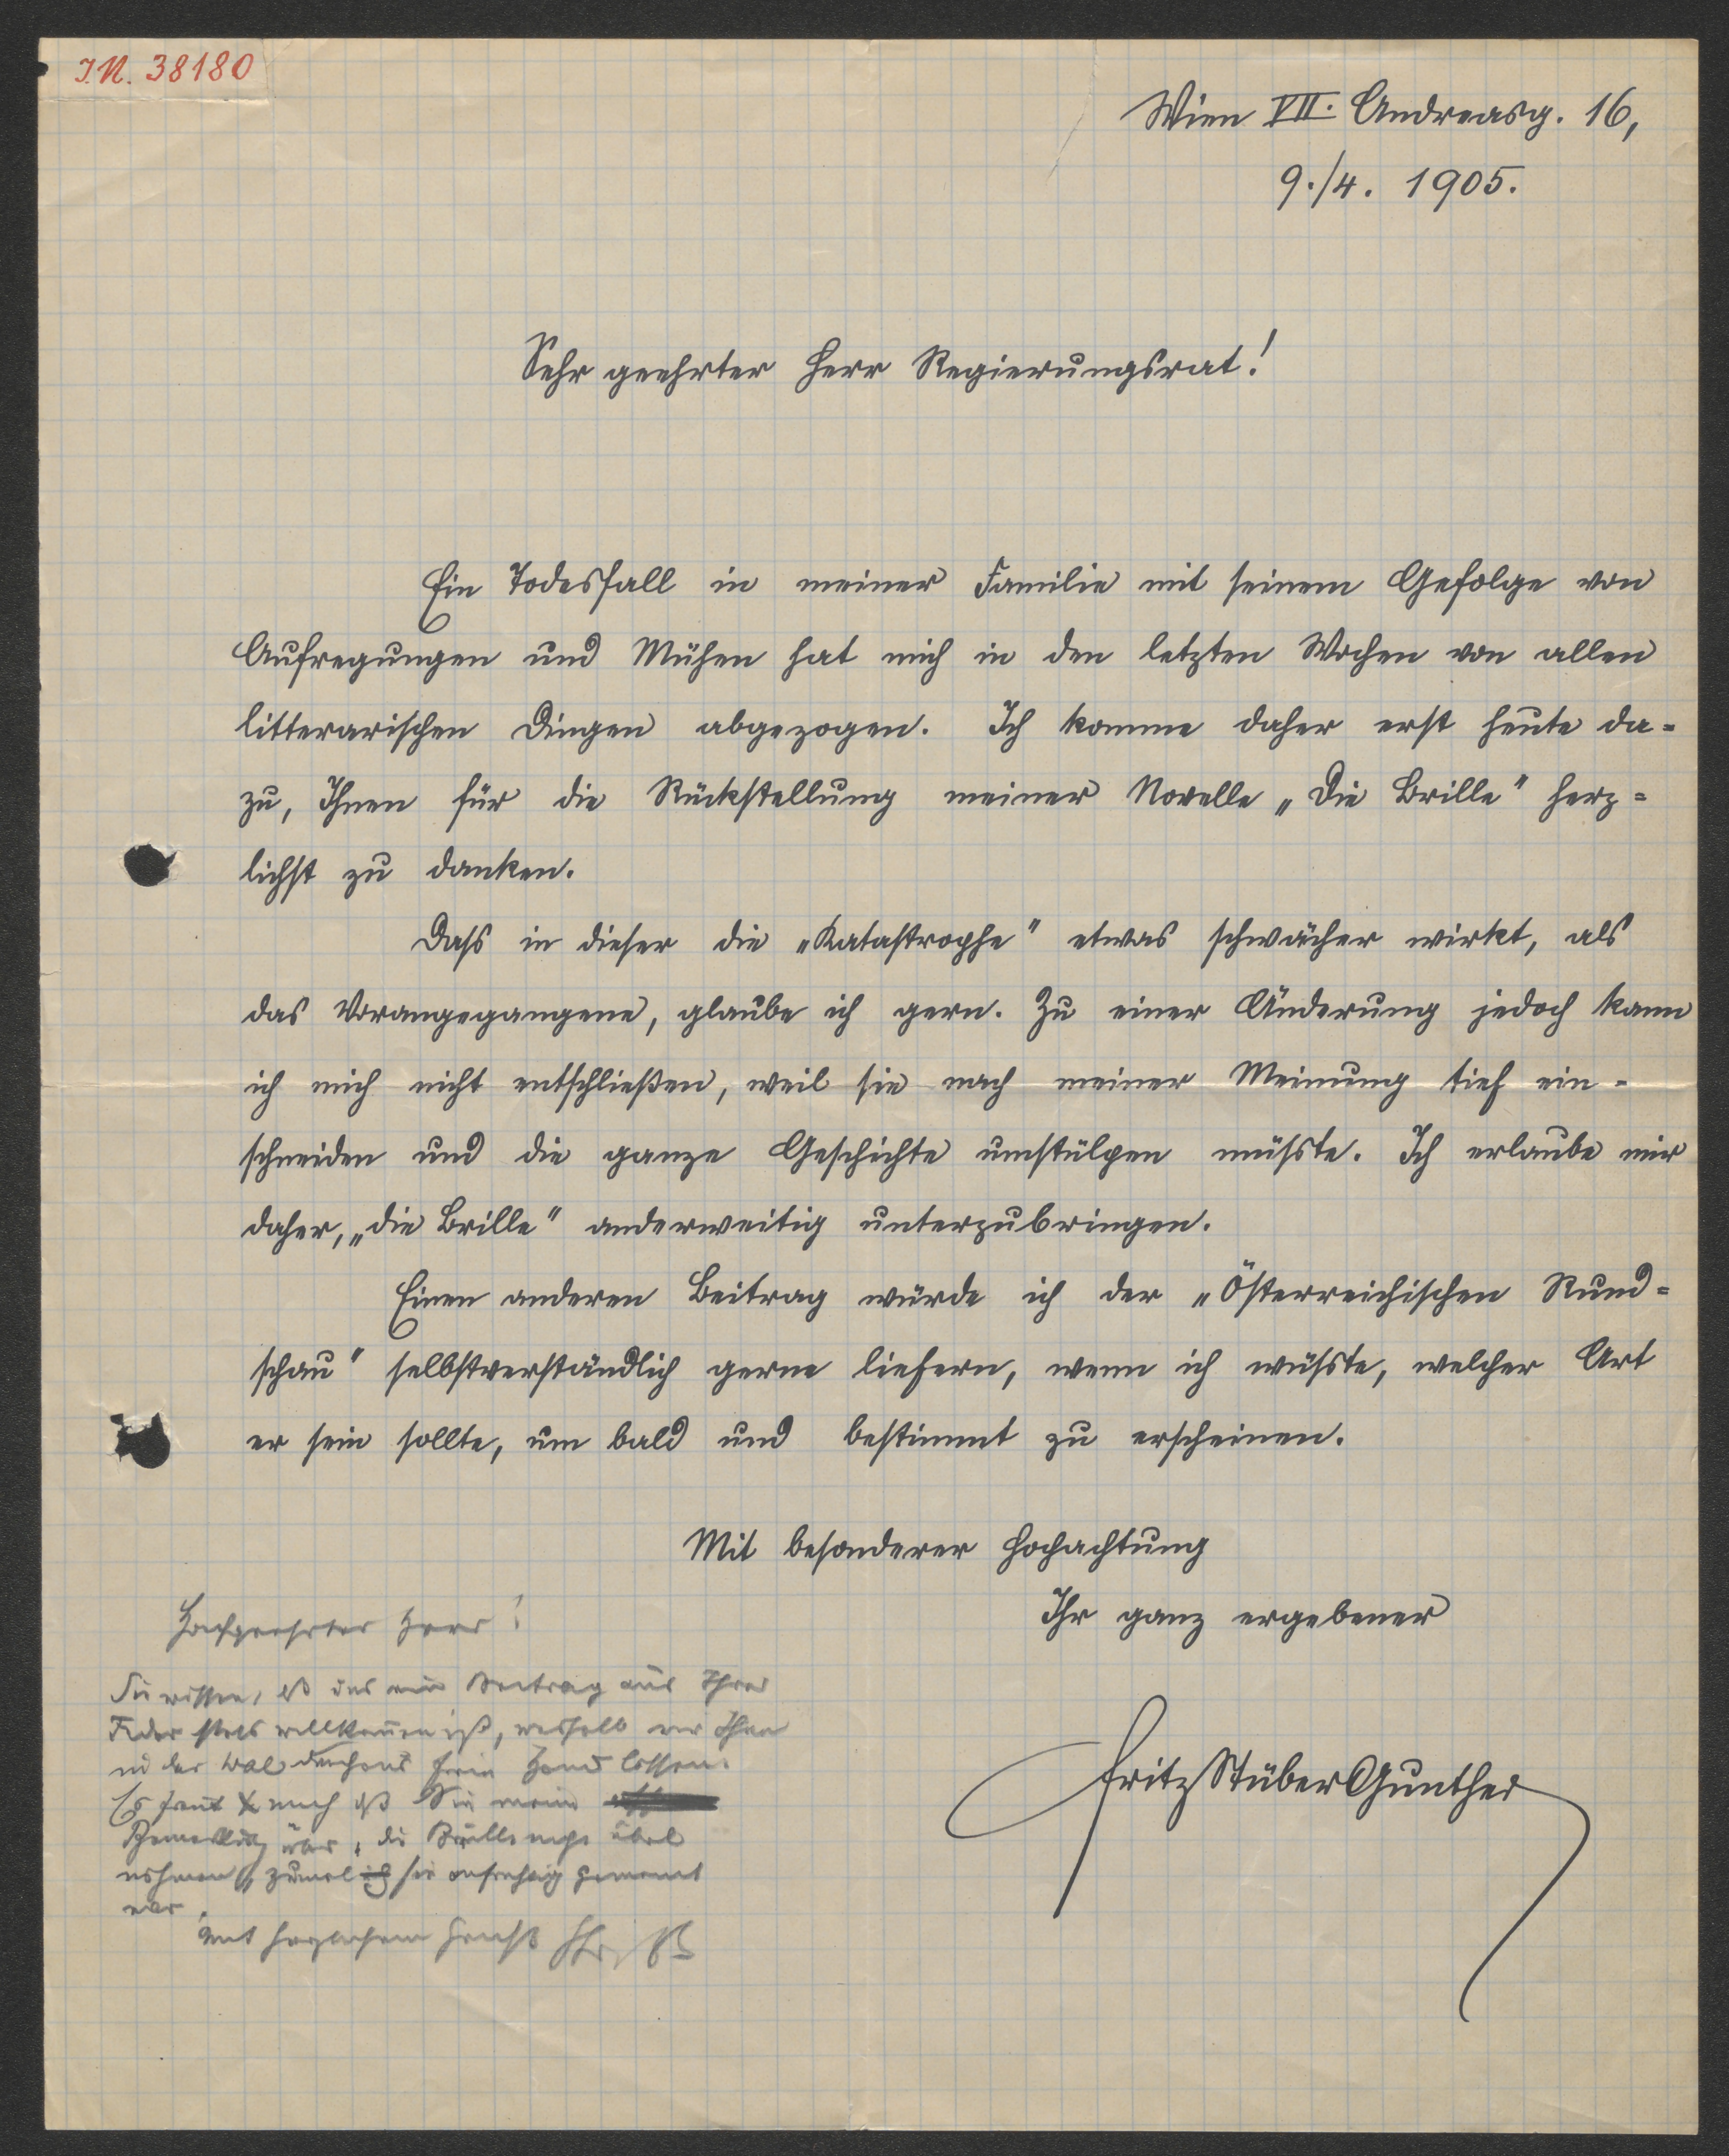 I.N. 38180
Wien VII. Andreasg. 16,
9./4. 1905.
Sehr geehrter Herr Regierungsrat!
Ein Todesfall in meiner Familie mit seinem Gefolge von
Aufregungen und Mühen hat mich in den letzten Wochen von allen
litterarischen Dingen abgezogen. Ich komme daher erst heute da-
zu, Ihnen für die Rückstellung meiner Novelle „Die Brille" herz-
lichst zu danken.
Dass in dieser die „Katastrophe" etwas schwächer wirkt, als
das Vorangegangene, glaube ich gern. Zu einer Änderung jedoch kann
ich mich nicht entschließen, weil sie nach meiner Meinung tief ein-
schneiden und die ganze Geschichte umstülpen müsste. Ich erlaube mir
daher, „die Brille" anderweitig unterzubringen.
Einen anderen Beitrag würde ich der „Österreichischen Rund-
schau" selbstverständlich gerne liefern, wenn ich wüsste, welcher Art
er sein sollte, um bald und bestimmt zu erscheinen.
Mit besonderer Hochachtung
Ihr ganz ergebener
Fritz Stüber Gunther
Hochgeehrter Herr!
Sie wissen, ein Beitrag aus Ihrer
Feder stets willkommen ist, weshalb wir Ihnen
in der Wal durchaus freie Hand lassen.
Es freut mich Sie meine
Bemerkung über die Brille nicht übel
nehmen, zumal sie aufrichtig gemeint
war.
Mit herzlichem Gruß